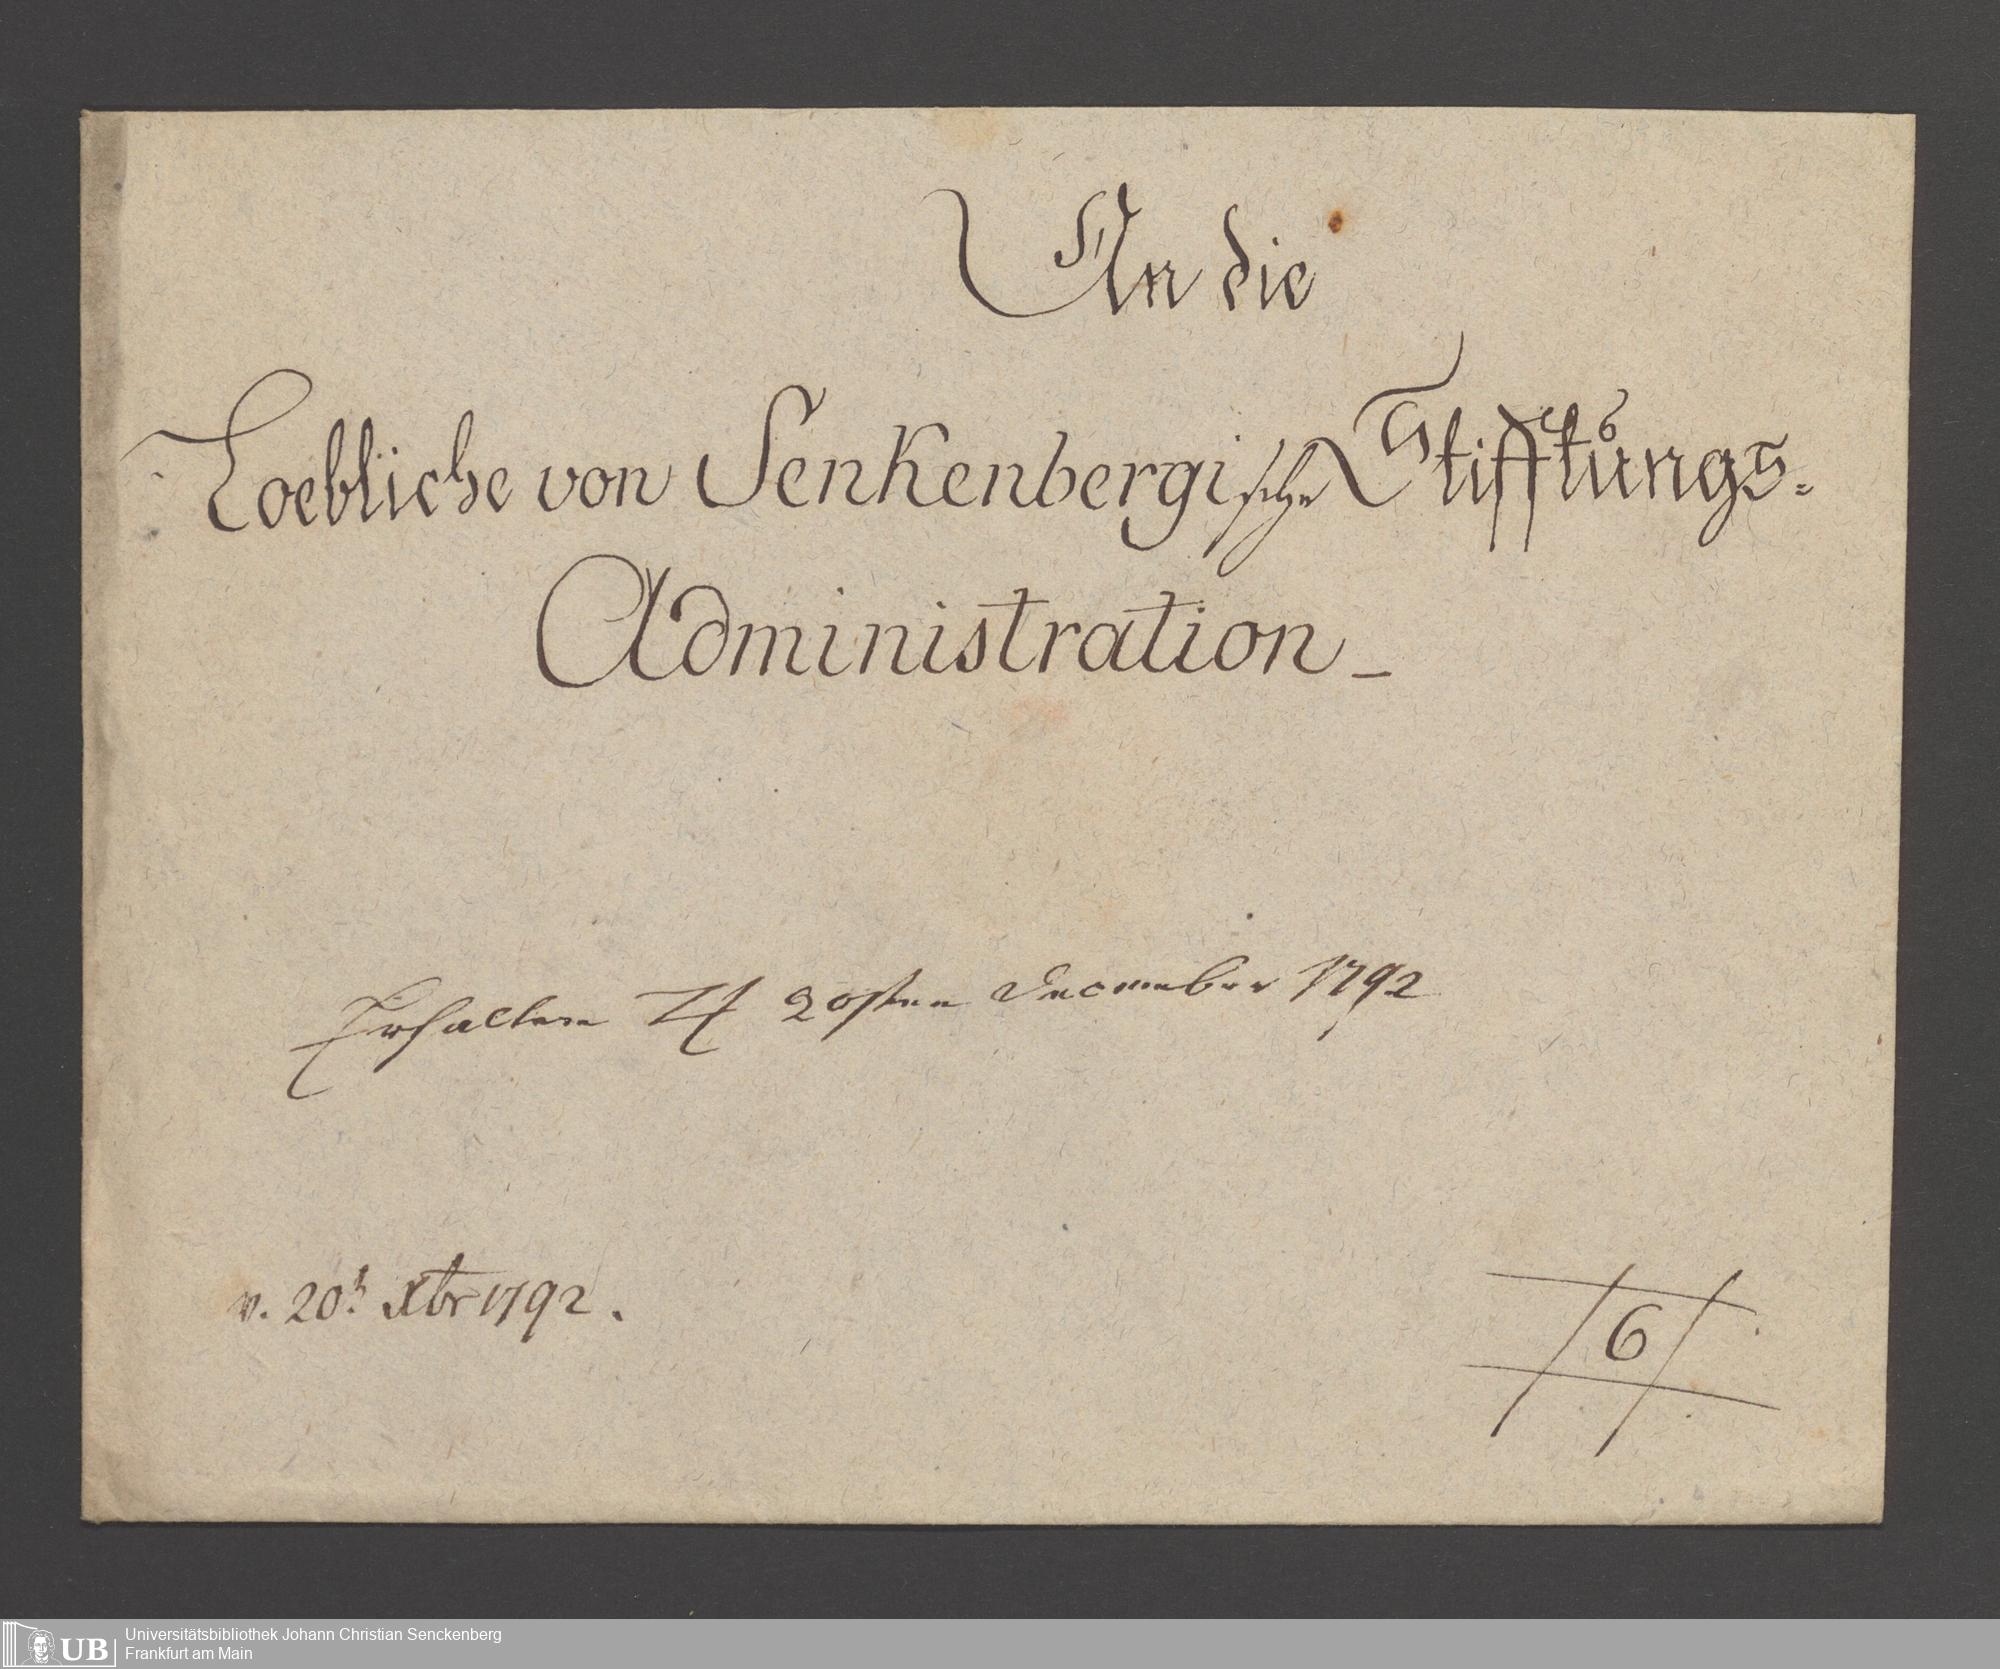 An die
Loebliche von Senkenbergische Stifftungs-
Administration_
Erhalten 20sten December 1792
v. 20t Xbr 1792.
6
UB
Universitätsbibliothek Johann Christian Senckenberg
Frankfurt am Main